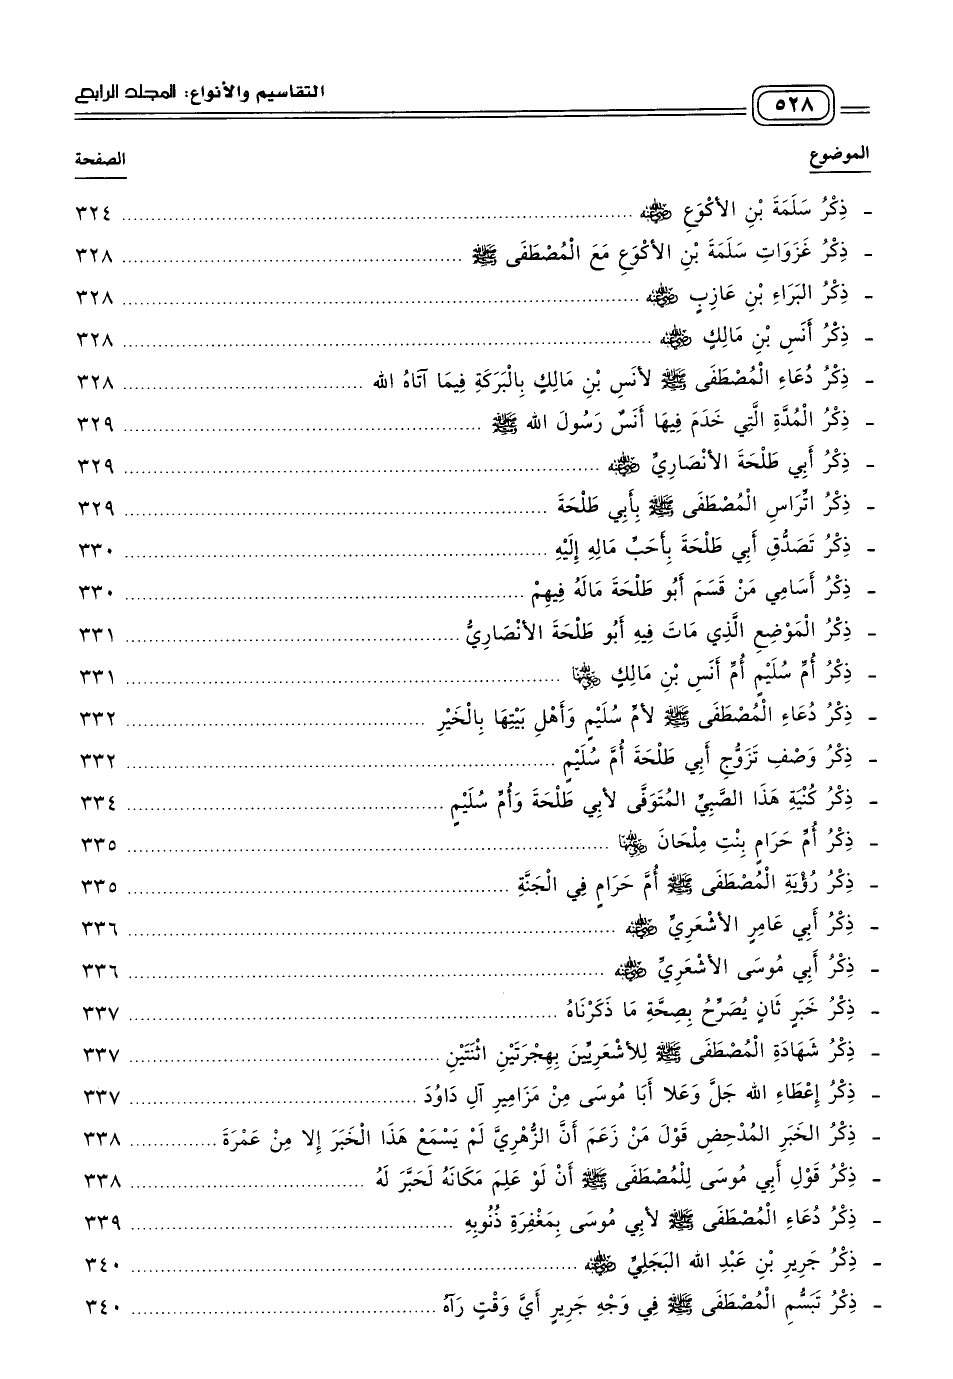 ٥٢٨ التقاسيم والأنواع: المجلد الرابع
الموضوع الصفحة
- ذِكْرُ سَلَمَةَ بْنِ الأكْوَعِ ﵁ ........ ٣٢٤
- ذِكْرُ غَزَوَاتِ سَلَمَةَ بْنِ الأكْوَعِ مَعَ الْمُصْطَفَى ﷺ ........ ٣٢٨
- ذِكْرُ البَرَاءِ بْنِ عَازِبٍ ﵁ ........ ٣٢٨
- ذِكْرُ أَنَسِ بْنِ مَالِكٍ ﵁ ........ ٣٢٨
- ذِكْرُ دُعَاءِ الْمُصْطَفَى ﷺ لأنَسِ بْنِ مَالِكٍ بِالْبَرَكَةِ فِيمَا آتَاهُ الله ........ ٣٢٨
- ذِكْرُ الْمُدَّةِ الَّتِي خَدَمَ فِيهَا أَنَسٌ رَسُولَ الله ﷺ ........ ٣٢٩
- ذِكْرُ أَبِي طَلْحَةَ الأنْصَارِيِّ ﵁ ........ ٣٢٩
- ذِكْرُ اتِّرَاسِ الْمُصْطَفَى ﷺ بِأَبِي طَلْحَةَ ........ ٣٢٩
- ذِكْرُ تَصَدُّقِ أَبِي طَلْحَةَ بِأَحَبِّ مَالِهِ إِلَيْهِ ........ ٣٣٠
- ذِكْرُ أَسَامِي مَنْ قَسَمَ أَبُو طَلْحَةَ مَالَهُ فِيهِمْ ........ ٣٣٠
- ذِكْرُ الْمَوْضِعِ الَّذِي مَاتَ فِيهِ أَبُو طَلْحَةَ الأنْصَارِيُّ ........ ٣٣١
- ذِكْرُ أُمِّ سُلَيْمٍ أُمِّ أَنَسِ بْنِ مَالِكٍ ﵂ ........ ٣٣١
- ذِكْرُ دُعَاءِ الْمُصْطَفَى ﷺ لأمِّ سُلَيْمٍ وَأَهْلِ بَيْتِهَا بِالْخَيْرِ ........ ٣٣٢
- ذِكْرُ وَصْفِ تَزَوُّجِ أَبِي طَلْحَةَ أُمَّ سُلَيْمٍ ........ ٣٣٢
- ذِكْرُ كُنْيَةِ هَذَا الصَّبِيِّ المُتَوَفَّى لأبِي طَلْحَةَ وَأُمِّ سُلَيْمٍ ........ ٣٣٤
- ذِكْرُ أُمِّ حَرَامٍ بِنْتِ مِلْحَانَ ﵂ ........ ٣٣٥
- ذِكْرُ رُؤْيَةِ الْمُصْطَفَى ﷺ أُمَّ حَرَامٍ فِي الْجَنَّةِ ........ ٣٣٥
- ذِكْرُ أَبِي عَامِرٍ الأشْعَرِيِّ ﵁ ........ ٣٣٦
- ذِكْرُ أَبِي مُوسَى الأشْعَرِيِّ ﵁ ........ ٣٣٦
- ذِكْرُ خَبَرٍ ثَانٍ يُصَرِّحُ بِصِحَّةِ مَا ذَكَرْنَاهُ ........ ٣٣٧
- ذِكْرُ شَهَادَةِ الْمُصْطَفَى ﷺ لِلأشْعَرِيِّينَ بِهِجْرَتَيْنِ اثْنَتَيْنِ ........ ٣٣٧
- ذِكْرُ إِعْطَاءِ الله جَلَّ وَعَلا أَبَا مُوسَى مِنْ مَزَامِيرِ آلِ دَاوُدَ ........ ٣٣٧
- ذِكْرُ الخَبَرِ المُدْحِضِ قَوْلَ مَنْ زَعَمَ أَنَّ الزُّهْرِيَّ لَمْ يَسْمَعْ هَذَا الْخَبَرَ إِلا مِنْ عَمْرَةَ ........ ٣٣٨
- ذِكْرُ قَوْلِ أَبِي مُوسَى لِلْمُصْطَفَى ﷺ أَنْ لَوْ عَلِمَ مَكَانَهُ لَحَبَّرَ لَهُ ........ ٣٣٨
- ذِكْرُ دُعَاءِ الْمُصْطَفَى ﷺ لأبِي مُوسَى بِمَغْفِرَةِ ذُنُوبِهِ ........ ٣٣٩
- ذِكْرُ جَرِيرِ بْنِ عَبْدِ الله البَجَلِيِّ ﵁ ........ ٣٤٠
- ذِكْرُ تَبَسُّمِ الْمُصْطَفَى ﷺ فِي وَجْهِ جَرِيرٍ أَيَّ وَقْتٍ رَآهُ ........ ٣٤٠